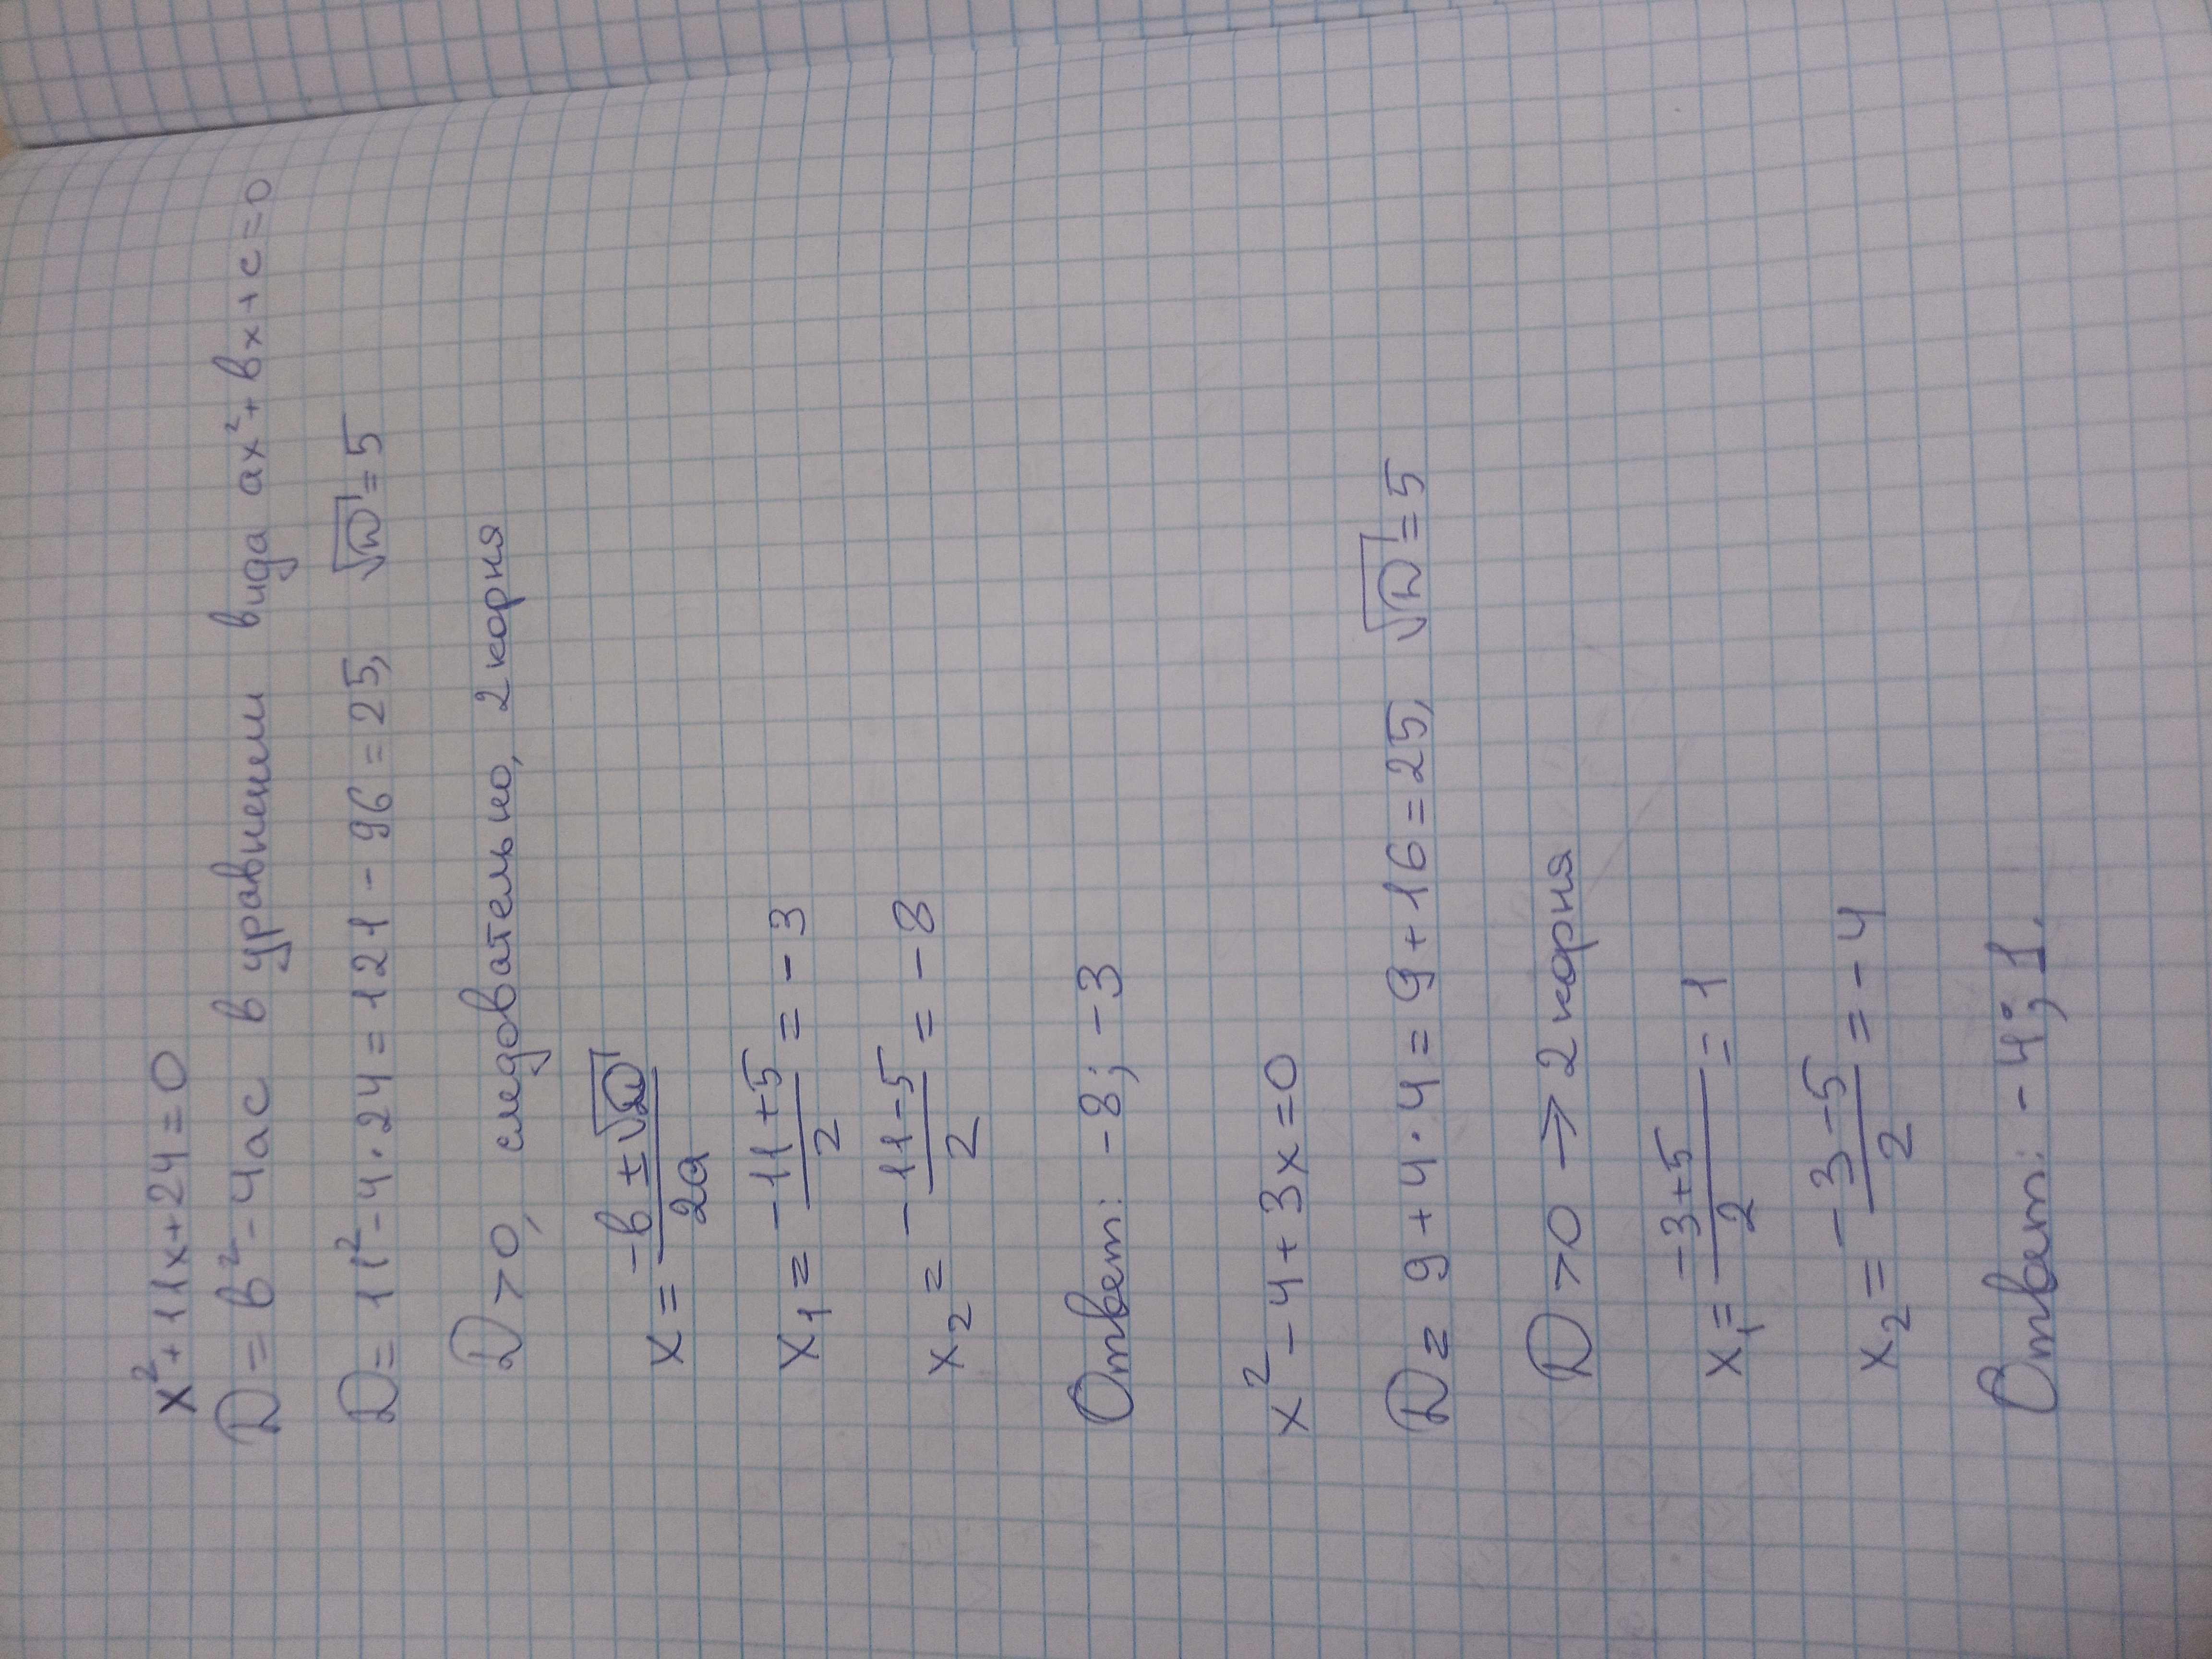 x² + 11x + 24 = 0
D = в² - 4ас в уравнении вида ах² + вх + с = 0
D = 11² - 4 · 24 = 121 - 96 = 25, √D = 5
D > 0, следовательно, 2 корня
x = (-в ± √D) / 2а
x₁ = (-11 + 5) / 2 = -3
x₂ = (-11 - 5) / 2 = -8
Ответ: -8; -3
x² - 4 + 3x = 0
D = 9 + 4 · 4 = 9 + 16 = 25, √D = 5
D > 0 → 2 корня
x₁ = (-3 + 5) / 2 = 1
x₂ = (-3 - 5) / 2 = -4
Ответ: -4; 1.